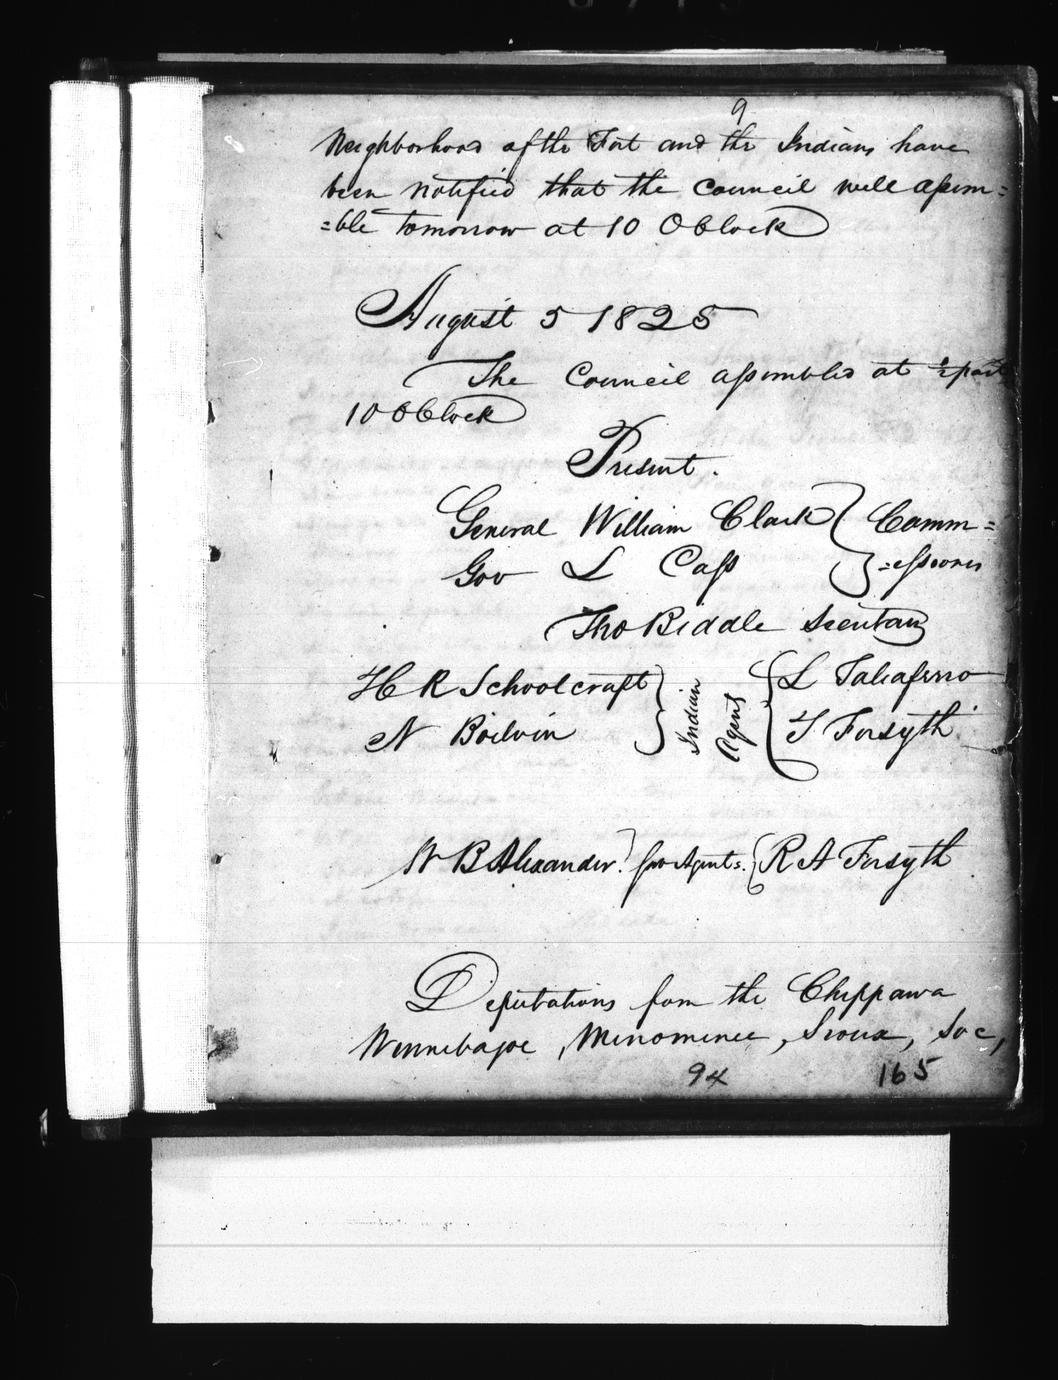 9
Neighborhood of the Fort and the Indians have
been notified that the Council will assem=
=ble tomorrow at 10 O Clock
August 5 1825
The Council assembled at ½ past
10 O Clock
Present.
General William Clark } Comm=
Gov L Cass } =issioners
Tho Biddle Secretary
H R Schoolcraft } Indian Agents { L Taliaferro
N Boilvin } { T Forsyth
W B Alexander } Sub Agents. { R A Forsyth
Deputations from the Chippawa
Winnebagoe, Menominee, Sioux, Sac,
94 165